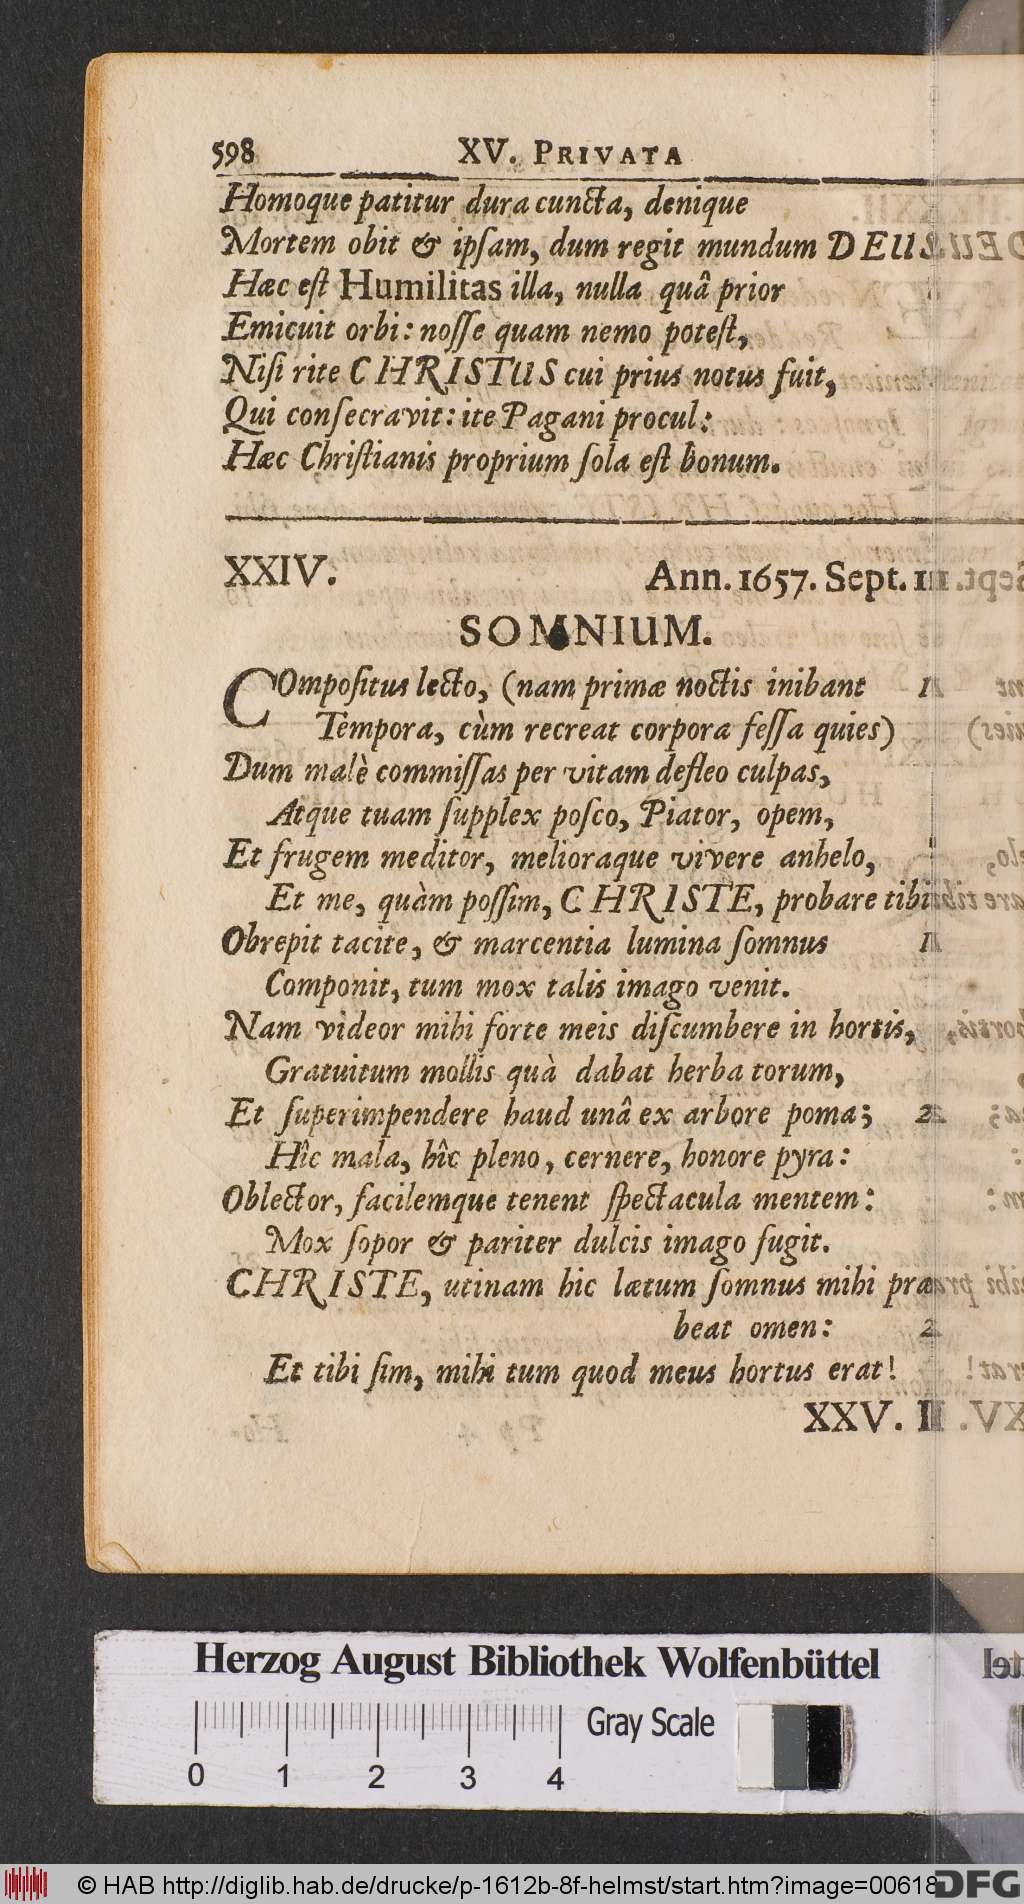 598 XV. PRIVATA
Homoque patitur dura cuncta, denique
Mortem obit & ipſam, dum regit mundum DEUS
Hæc eſt Humilitas illa, nulla quâ prior
Emicuit orbi: noſſe quam nemo poteſt,
Niſi rite CHRISTUS cui prius notus fuit,
Qui conſecravit: ite Pagani procul:
Hæc Chriſtianis proprium ſola eſt bonum.
XXIV. Ann. 1657. Sept.
SOMNIUM.
COmpoſitus lecto, (nam primæ noctis inibant
Tempora, cùm recreat corpora feſſa quies)
Dum malè commiſſas per vitam defleo culpas,
Atque tuam ſupplex poſco, Piator, opem,
Et frugem meditor, melioraque vivere anhelo,
Et me, quàm poſſim, CHRISTE, probare tibi
Obrepit tacite, & marcentia lumina ſomnus
Componit, tum mox talis imago venit.
Nam videor mihi forte meis diſcumbere in hortis,
Gratuitum mollis quà dabat herba torum,
Et ſuperimpendere haud unâ ex arbore poma;
Hîc mala, hîc pleno, cernere, honore pyra:
Oblector, facilemque tenent ſpectacula mentem:
Mox ſopor & pariter dulcis imago fugit.
CHRISTE, utinam hic lætum ſomnus mihi præ
beat omen:
Et tibi ſim, mihi tum quod meus hortus erat!
XXV.
Herzog August Bibliothek Wolfenbüttel
Gray Scale
0 1 2 3 4
© HAB http://diglib.hab.de/drucke/p-1612b-8f-helmst/start.htm?image=00618
DFG